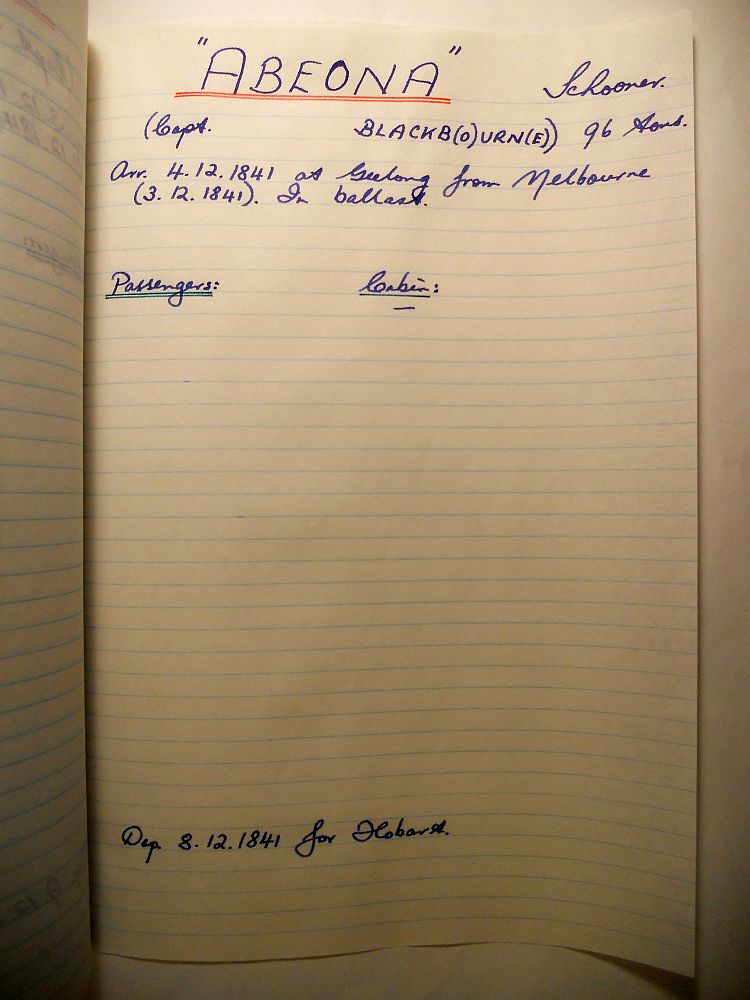 "ABEONA" Schooner.
(Capt. BLACKB(O)URN(E)) 96 tons.
Arr. 4.12.1841 at Geelong from Melbourne
(3.12.1841). In ballast.
Passengers: Cabin:
—
Dep. 8.12.1841 for Hobart.